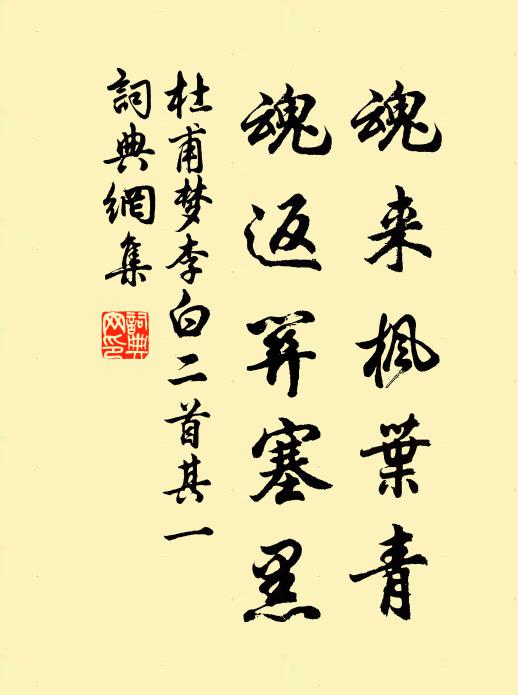 魂来枫葉青
魂返関塞黑
杜甫梦李白二首其一
詞典網集
詞典网印